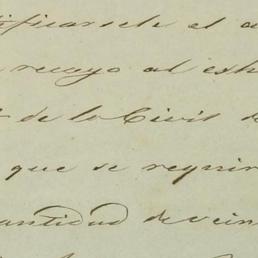 tificarsele el a
recayo al esh
de lo Civil de
que se requir
cantidad de vein